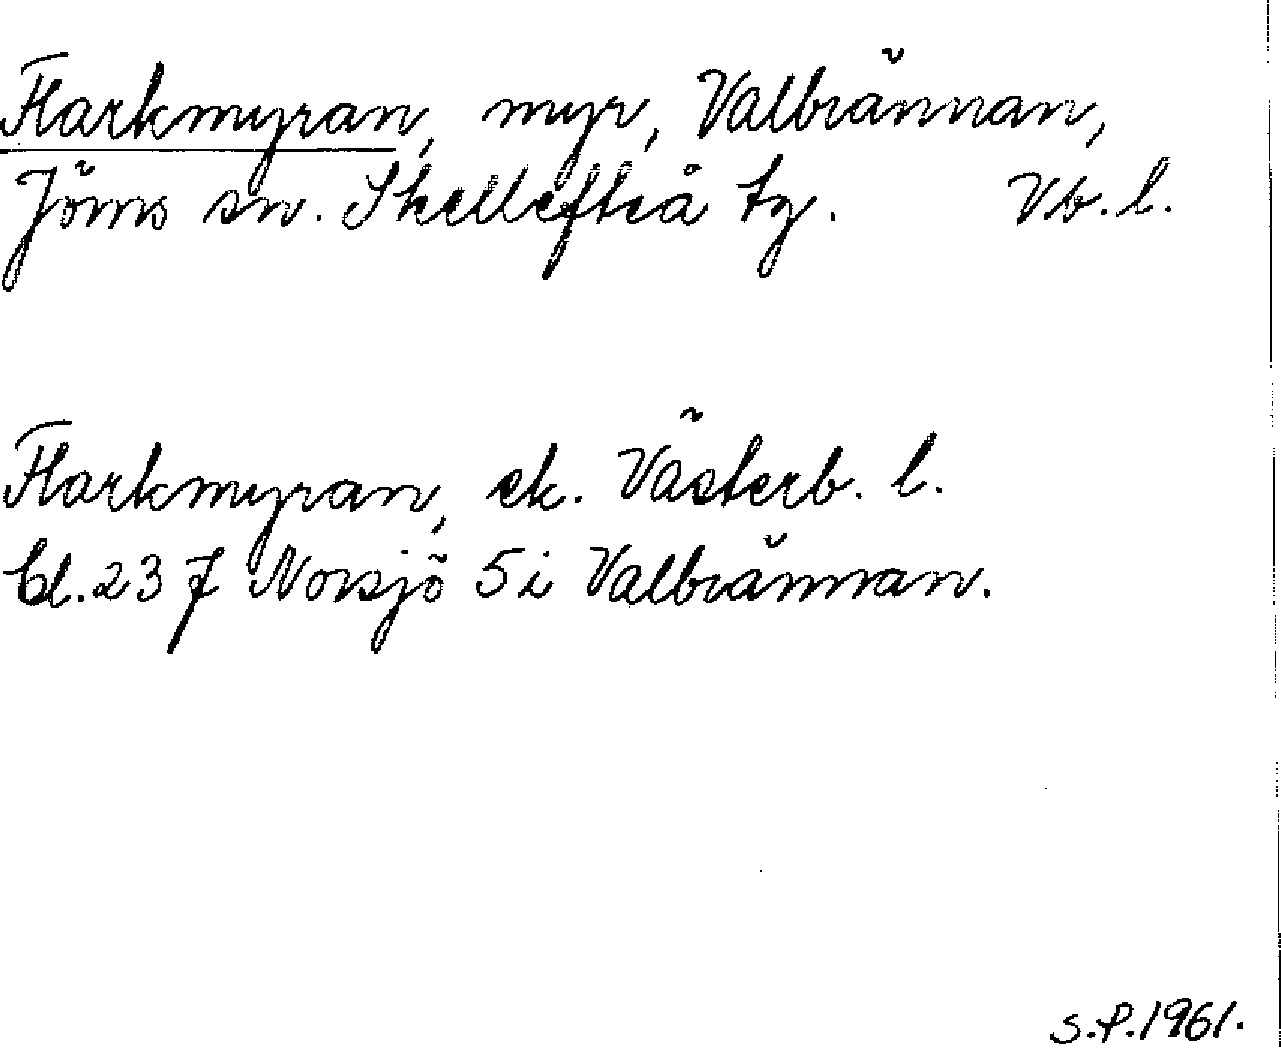 Flarkmyran, myr, Valbrännan,
Jörns sn. Skellefteå tg. Vb. l.
Flarkmyran, ek. Västerb. l.
Bl. 23 J Norsjö 5i Valbrännan.
S.P. 1961.